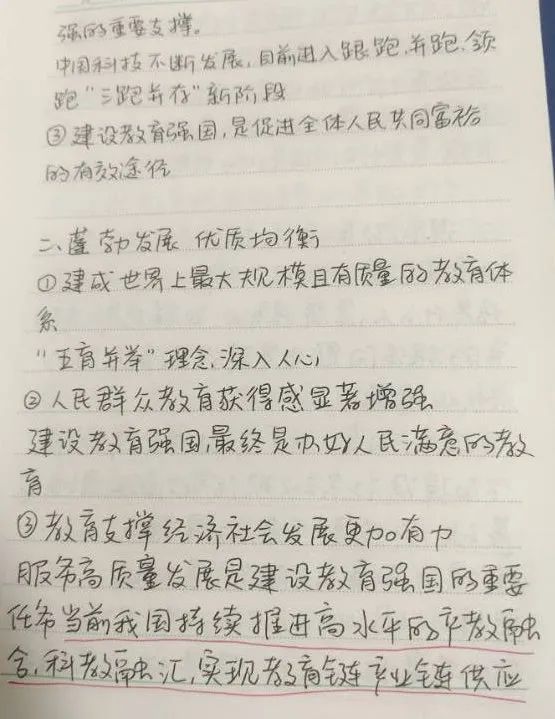 强的重要支撑。
中国科技不断发展,目前进入跟跑、并跑、领
跑“三跑并存”新阶段
③建设教育强国,是促进全体人民共同富裕
的有效途径
二、蓬勃发展 优质均衡
①建成世界上最大规模且有质量的教育体
系
“五育并举”理念,深入人心,
②人民群众教育获得感显著增强
建设教育强国,最终是办好人民满意的教
育
③教育支撑经济社会发展更加有力
服务高质量发展是建设教育强国的重要
任务当前我国持续推进高水平的产教融
合,科教融汇,实现教育链产业链供应